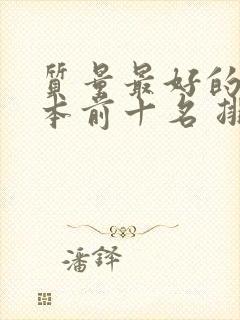 质量最好的
本前十名排
潘铎